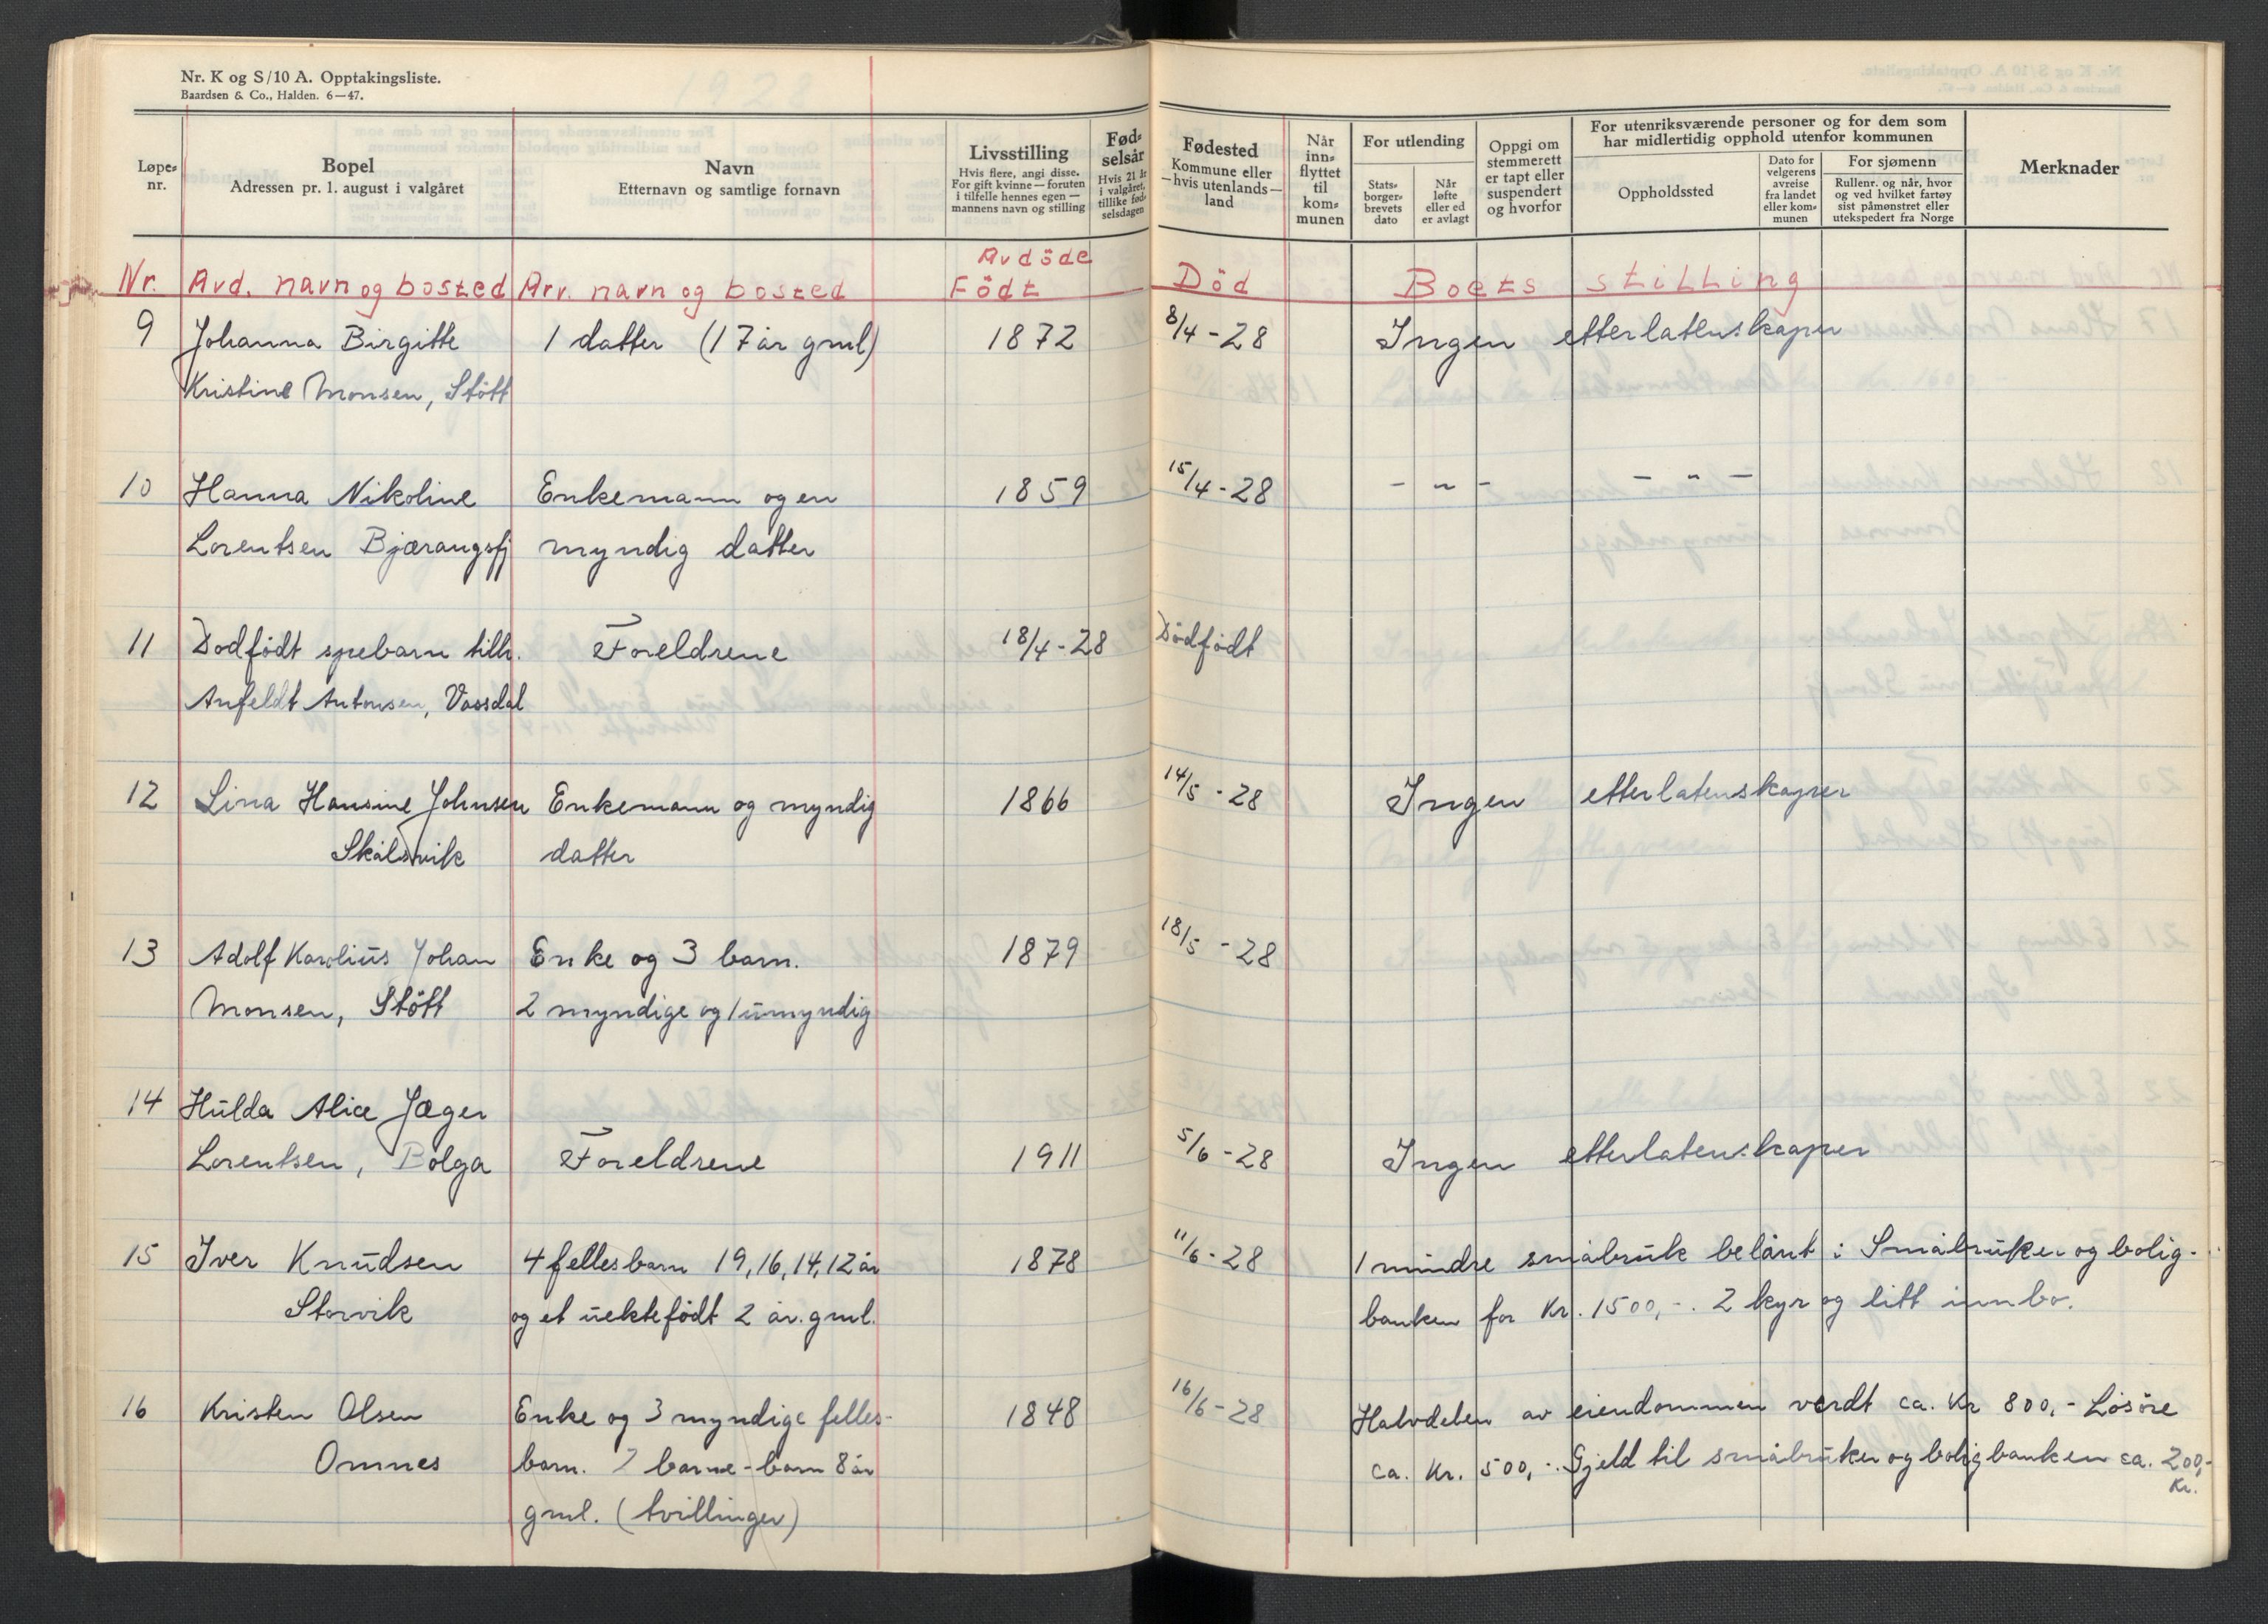 Nr. K og S/10 A. Opptakingsliste.
Baardsen & Co., Halden. 6—47.
1928
Løpe-
nr.
Bopel
Adressen pr. 1. august i valgåret
Navn
Etternavn og samtlige fornavn
Livsstilling
Hvis flere, angi disse.
For gift kvinne — foruten
i tilfelle hennes egen —
mannens navn og stilling
Fød-
selsår
Hvis 21 år
i valgåret,
tillike fød-
selsdagen
Fødested
Kommune eller
— hvis utenlands —
land
Når
inn-
flyttet
til
kom-
munen
For utlending
Stats-
borger-
brevets
dato
Når
løfte
eller ed
er avlagt
Oppgi om
stemmerett
er tapt eller
suspendert
og hvorfor
For utenriksværende personer og for dem som
har midlertidig opphold utenfor kommunen
Oppholdssted
Dato for
velgerens
avreise
fra landet
eller kom-
munen
For sjømenn
Rullenr. og når, hvor
og ved hvilket fartøy
sist påmønstret eller
utekspedert fra Norge
Merknader
Avdöde
Nr. Avd. navn og bosted Arv. navn og bosted Födt Död Boets stilling
9 Johanna Birgitte 1 datter (17 år gml) 1872 8/4-28 Ingen etterlatenskaper
Kristine Monsen, Stött
10 Hanna Nikoline Enkemann og en 1859 15/4-28 - " - - " -
Lorentsen Bjærangsfj myndig datter
11 Dødfödt spebarn tilh. Foreldrene 18/4-28 Dödfödt
Anfeldt Antonsen, Vassdal
12 Lina Hansine Johnsen Enkemann og myndig 1866 14/5-28 Ingen etterlatenskaper
Skålsvik datter
13 Adolf Karolius Johan Enke og 3 barn. 1879 18/5-28
Monsen, Stött 2 myndige og 1 umyndig
14 Hulda Alice Jæger
Lorentsen, Bolga Foreldrene 1911 5/6-28 Ingen etterlatenskaper
15 Iver Knudsen 4 fellesbarn 19, 16, 14, 12 år 1878 11/6-28 1 mindre småbruk belånt i Småbruker og bolig-
Storvik og et uektefödt 2 år. gml. banken for Kr. 1500,-. 2 kyr og litt innbo.
16 Kristen Olsen Enke og 3 myndige felles- 1848 16/6-28 Halvdelen av eiendommen verdt ca. Kr 800,- Lösöre
Omnes barn. 2 barne-barn 8 år ca. Kr. 500,-. Gjeld til småbruker og boligbanken ca. 200,-
Kr.
gml. (tvillinger)